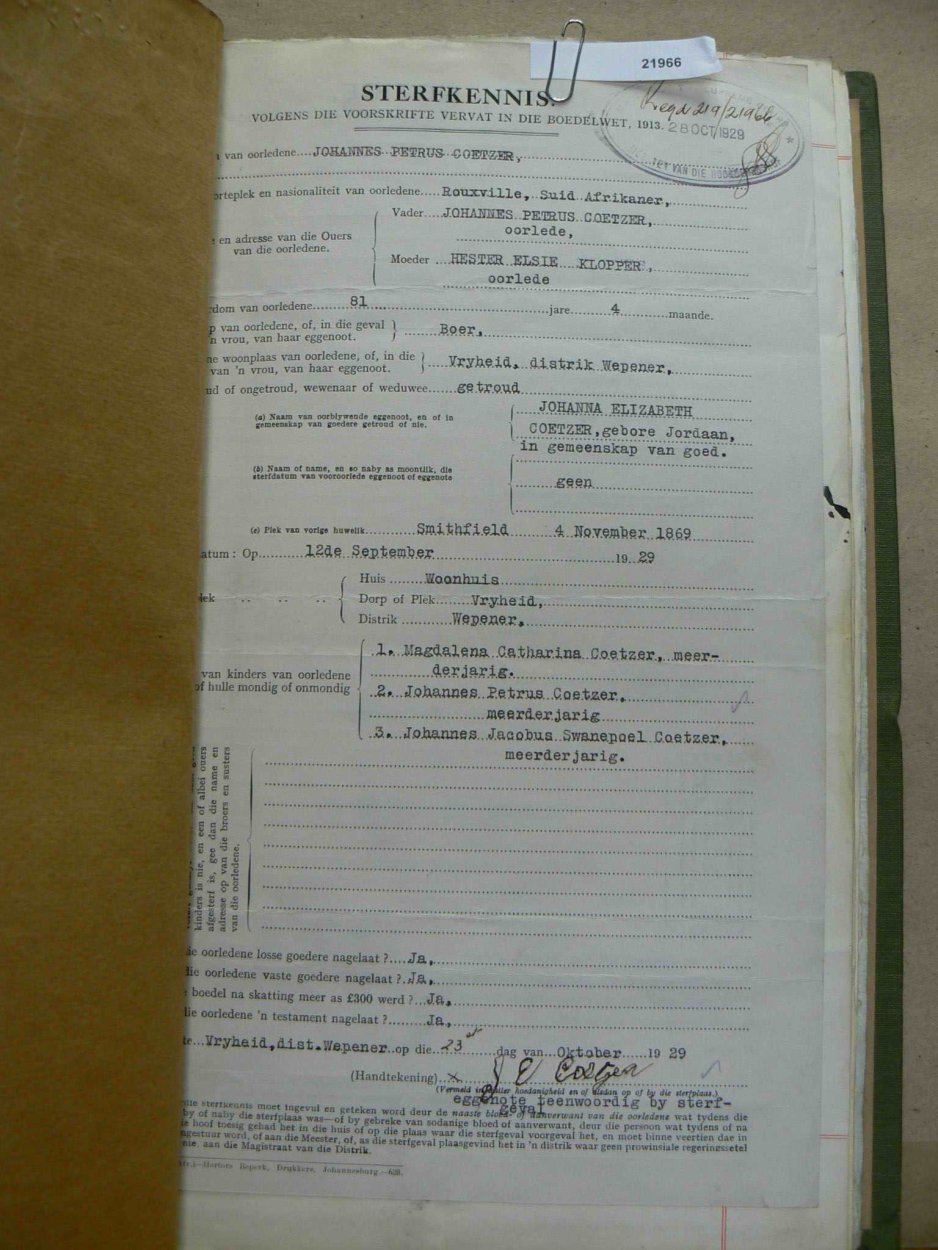 21966
STERFKENNIS.
VOLGENS DIE VOORSKRIFTE VERVAT IN DIE BOEDELWET, 1913.
Regd 219/21966
28 OCT 1929
van oorledene....JOHANNES PETRUS COETZER,
orteplek en nasionaliteit van oorledene....Rouxville, Suid Afrikaner,
e en adresse van die Ouers van die oorledene.
Vader....JOHANNES PETRUS COETZER,
oorlede,
Moeder....HESTER ELSIE KLOPPER,
oorlede
rdom van oorledene....81....jare....4....maande.
p van oorledene, of, in die geval
'n vrou, van haar eggenoot.
Boer,
ne woonplaas van oorledene, of, in die
van 'n vrou, van haar eggenoot.
Vryheid, distrik Wepener,
ud of ongetroud, wewenaar of weduwee....getroud
(a) Naam van oorblywende eggenoot, en of in
gemeenskap van goedere getroud of nie.
JOHANNA ELIZABETH
COETZER, gebore Jordaan,
in gemeenskap van goed.
(b) Naam of name, en so naby as moontlik, die
sterfdatum van vooroorlede eggenoot of eggenote
geen
(c) Plek van vorige huwelik....Smithfield 4 November 1869
atum : Op....12de September....19 29
lek .. .. ..
Huis....Woonhuis
Dorp of Plek....Vryheid,
Distrik....Wepener,
van kinders van oorledene
of hulle mondig of onmondig
1. Magdalena Catharina Coetzer, meer-
derjarig.
2. Johannes Petrus Coetzer,
meerderjarig
3. Johannes Jacobus Swanepoel Coetzer,
meerderjarig.
kinders is nie, en een of albei ouers
afgesterf is, gee dan die name en
adresse op van die broers en susters
van die oorledene.
ie oorledene losse goedere nagelaat ?....Ja,
lie oorledene vaste goedere nagelaat ?..Ja,
boedel na skatting meer as £300 werd ?..Ja,
lie oorledene 'n testament nagelaat ?....Ja,
te...Vryheid,dist.Wepener..op die..23st....dag van..Oktober....19 29
(Handtekening)..x J E Coetzer
(Vermeld in watter hoedanigheid en of aldan op of by die sterfplaas.)
eggenote teenwoordig by sterf-
geval
sterfkennis moet ingevul en geteken word deur de naaste bloed- of aanverwant van die oorledene wat tydens die
by of naby die sterfplaas was—of by gebreke van sodanige bloed of aanverwant, deur die persoon wat tydens of na
e hoof toesig gehad het in die huis of op die plaas waar die sterfgeval voorgeval het, en moet binne veertien dae in
ngestuur word, of aan die Meester, of, as die sterfgeval plaasgevind het in 'n distrik waar geen prowinsiale regeringssetel
nie, aan die Magistraat van die Distrik.
tr.)—Hortors Beperk, Drukkers, Johannesburg.—628.